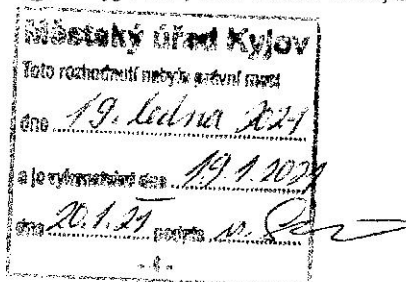 Městský úřad Kyjov
Toto rozhodnutí nabylo právní moci
dne 19. ledna 2021
a je vykonatelné dne 19.1.2021
dne 20.1.21 podpis
- 4 -